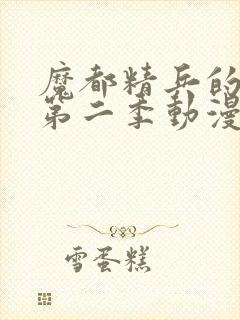 魔都精兵的
第二季動漫
雪蛋糕